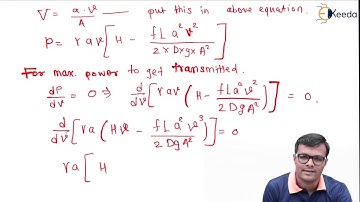 V = a·v² / A —— put this in above equation.
Keeda
P = rav [ H - fLa²v² / 2×D×g×A² ]
For max. power to get transmitted.
dP/dv = 0 ⇒ d/dv [ rav ( H - fLa²v² / 2DgA² ) ] = 0.
d/dv [ ra ( Hv - fLa²v³ / 2DgA² ) ] = 0
ra [ H